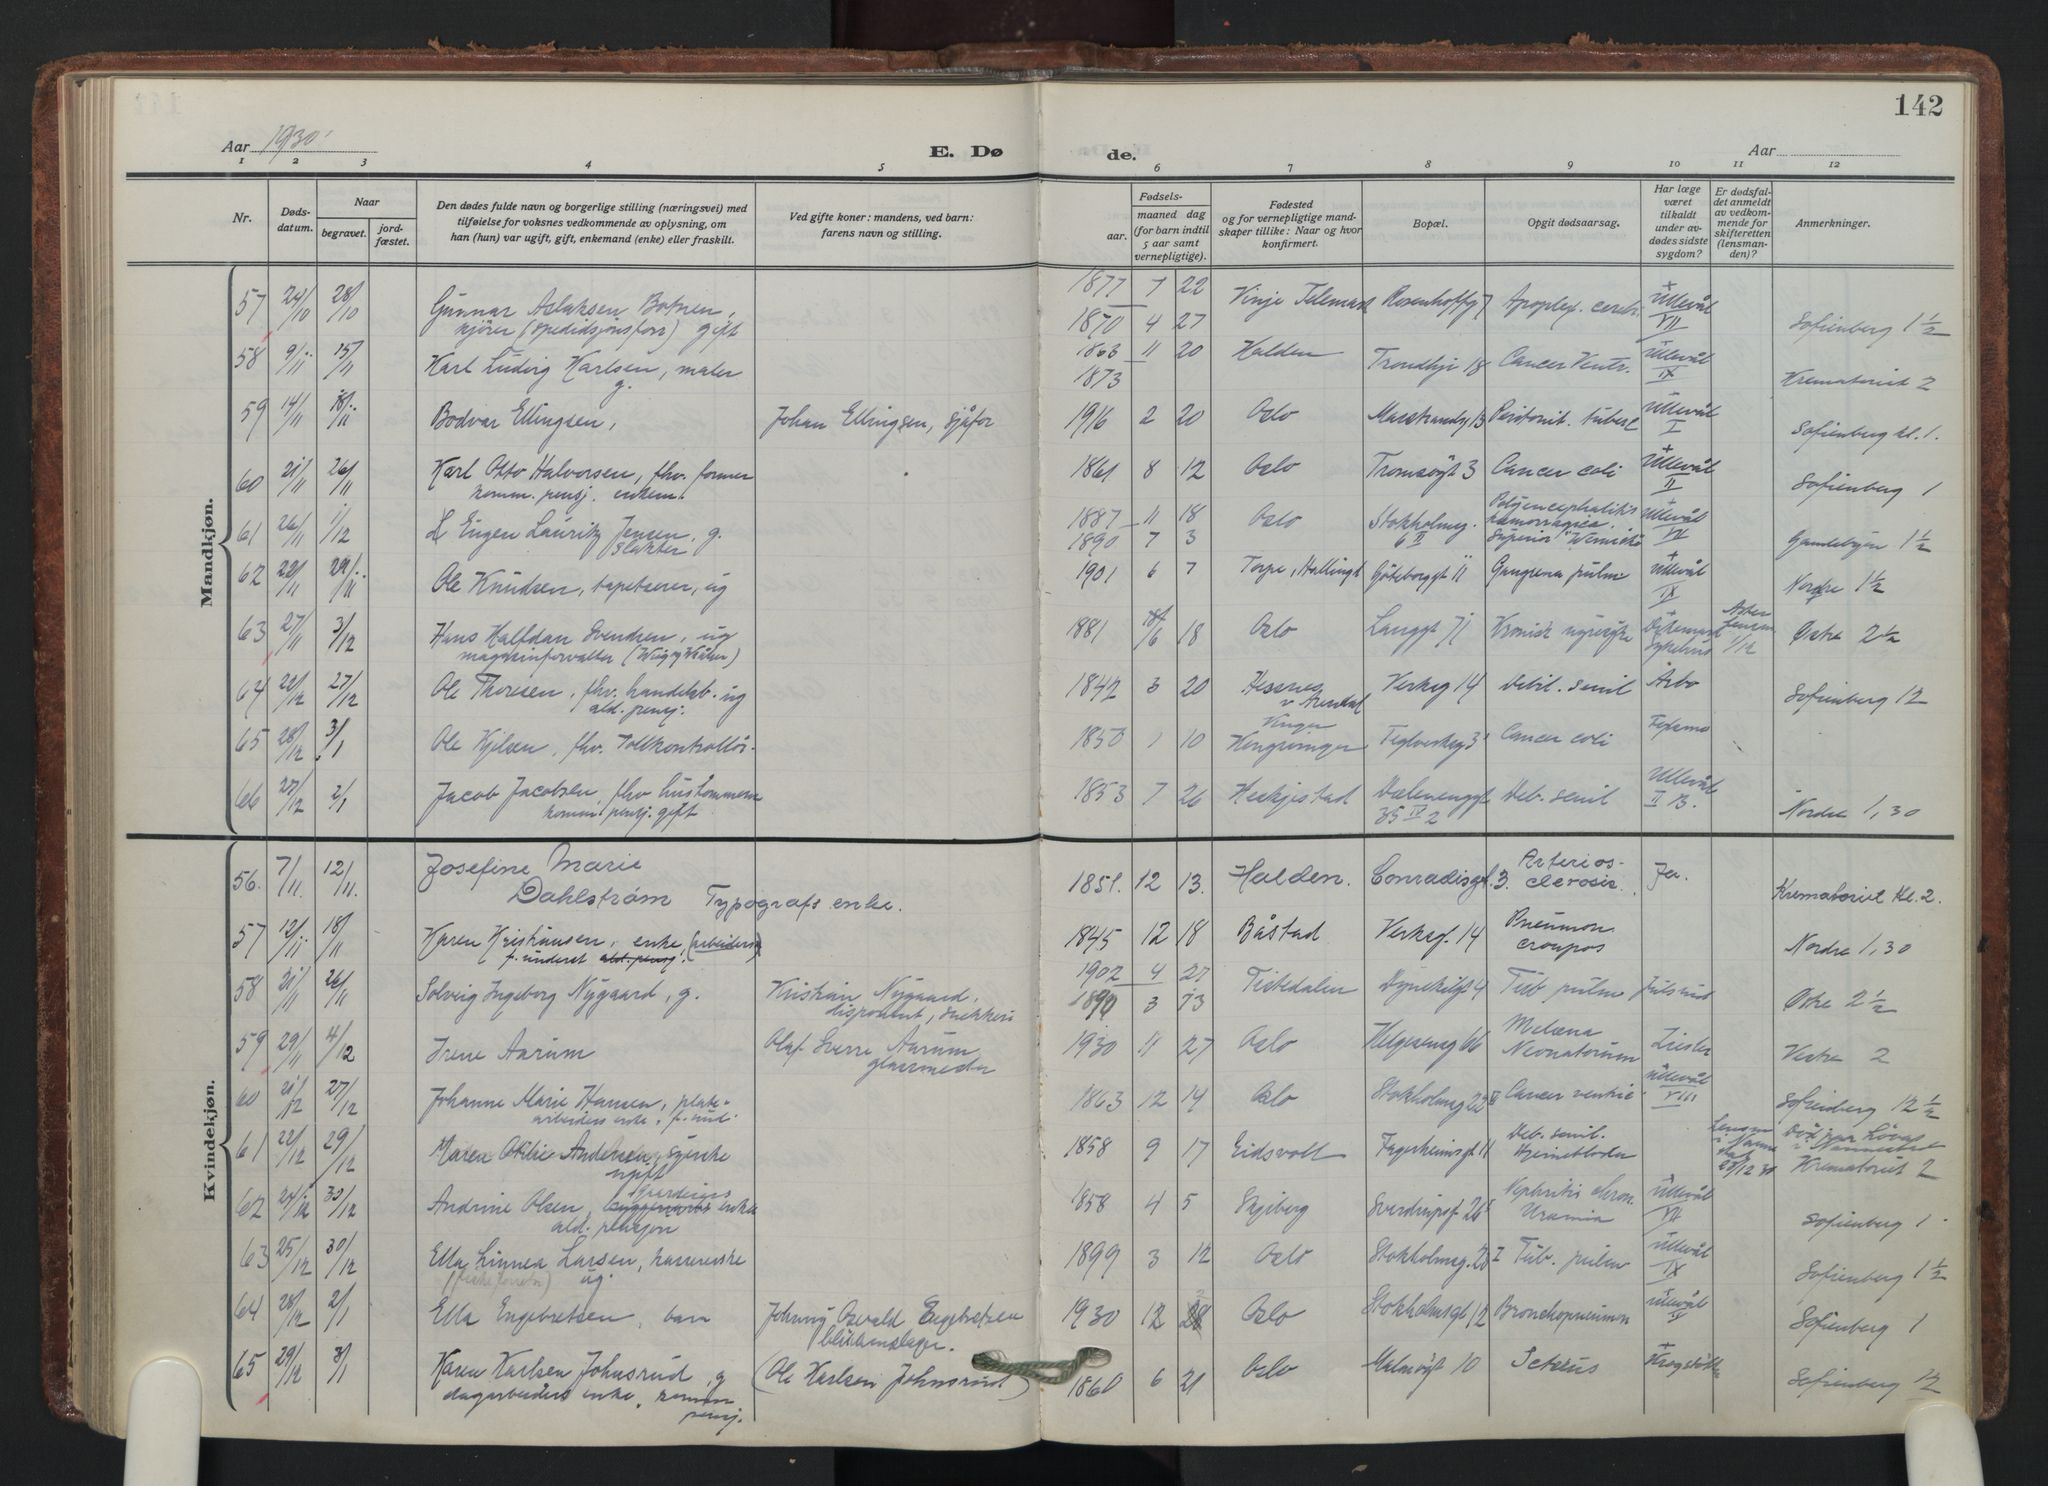 142
Aar 1930 E. Dø de. Aar
1 2 3 4 5 6 7 8 9 10 11 12
Nr. Døds-datum. Naar begravet. jord-fæstet. Den dødes fulde navn og borgerlige stilling (næringsvei) med tilføielse for voksnes vedkommende av oplysning, om han (hun) var ugift, gift, enkemand (enke) eller fraskilt. Ved gifte koner: mandens, ved barn: farens navn og stilling. Fødsels- aar. maaned dag (for barn indtil 5 aar samt vernepligtige). Fødested og for vernepligtige mand-skaper tillike: Naar og hvor konfirmert. Bopæl. Opgit dødsaarsag. Har læge været tilkaldt under av-dødes sidste sygdom? Er dødsfal-det anmeldt av vedkom-mende for skifteretten (lensman-den)? Anmerkninger.
Mandkjøn.
57 24/10 28/10 Gunnar Aslaksen Botnen, 1877 7 22 Vinje Telemark Rosenhoffg 7 Apoplex. cerebr. + Ullevål VII
kjører (spedidsjonsforr) gift 1870 4 27 Sofienberg 1 1/2
58 9/11 15/11 Karl Ludvig Karlsen, maler 1863 11 20 Halden Trondhj 18 Cancer Ventr. + Ullevål IX
g. 1873 Krematoriet 2
59 14/11 18/11 Bodvar Ellingsen, Johan Ellingsen, sjåfør 1916 2 20 Oslo Masstrandg 13 Peritonit. tubercl Ullevål I Sofienberg kl. 1.
60 21/11 26/11 Karl Otto Halvorsen, fhv. former 1861 8 12 Oslo Tromsøgt 3 Cancer coli + Ullevål II
komm. pensj. enkem. Sofienberg 1
61 26/11 1/12 Eugen Lauritz Jensen, g. 1887 11 18 Oslo Stokholmsg. 6 II Polyencephalitis hæmorragica + Ullevål VII
slakter 1890 7 3 superior Wernicke Gamlebyen 1 1/2
62 22/11 29/11 Ole Knudsen, tapetserer, ug 1901 6 7 Torpe, Hallingd Göteborggt 11 Gangrena pulm + Ullevål IX Nordre 1 1/2
63 27/11 3/12 Hans Halfdan Svendsen, ug 1881 6 18 Oslo Langgt 71 Kronisk nyresyke + Sykehus Jensen 1/12 Østre 2 1/2
magasinforvalter
64 20/12 27/12 Ole Thoresen, fhv. handelsb. ug 1842 3 20 Hesnes v. Arendal Verksg 14 Debil. senil Arbo Sofienberg 12
ald. pensj.
65 28/12 3/1 Ole Kjilsen, fhv. Tollkontrollør 1850 1 10 Vinger Kongsvinger Teglverksg 3 Cancer coli
66 27/12 2/1 Jacob Jacobsen, fhv hustømmerm 1853 7 26 Heckjestad Dælenenggt 35 IV 2 Deb. senil Ullevål II B. Nordre 1,30
komm. pensj. gift
Kvindekjøn.
56. 7/11. 12/11. Josefine Marie 1851. 12 13. Halden. Conradisgt 3. Arterios-clerosis. Ja. Krematoriet kl. 2.
Dahlstrøm Typografs enke.
57 12/11 18/11 Karen Kristiansen, enke (arbeiders) 1845 12 18 Båstad Verksgt. 14 Pneumon croupos Nordre 1,30
f. underst ald. pensj.
58 21/11 26/11 Solveig Ingeborg Nygaard, g. Kristian Nygaard, disponent, snekkeri 1902 4 27 Tistedalen Dynekilgt 4 Tub pulm Julsrud Østre 2 1/2
1890 3 13
59 29/11 4/12 Irene Aarum Olaf Sverre Aarum glassmeder 1930 11 27 Oslo Helgesensg 66 Melæna Neonatorum Ziesler Vestre 2
60 21/12 27/12 Johanne Marie Hansen, plate- 1863 12 14 Oslo Stokholmsg 22 II Cancer ventric Ullevål VIII Sofienberg 12 1/2
arbeiders enke, f. und.
61 22/12 29/12 Maren Otilie Andersen, syerske 1858 9 17 Eidsvoll Fagerheimsgt 11 Deb. senil. Hjerneblødn Krematoriet 2
ugift
62 24/12 30/12 Andrine Olsen, enke 1858 4 5 Skjeberg Sverdrupsgt 26 Nephritis chron. Uræmia Ullevål VII Sofienberg 1
ald. pensjon
63 25/12 30/12 Ella Linnea Larsen, kassererske 1899 3 12 Oslo Stokholmsg. 28 I Tub. pulm Ullevål IX Sofienberg 1 1/2
ug.
64 28/12 2/1 Ella Engebretsen, barn Johnny Osvald Engebretsen blikkenslager. 1930 12 Oslo Stokholmsgt 12 Bronchopneumon Ullevål Sofienberg 1
65 29/12 3/1 Karen Karlsen Johnsrud, g (Ole Karlsen Johnsrud) 1860 6 21 Oslo Malmøgt 10 Icterus + Krogstøtten Sofienberg
dagarbeiders enke, komm pensj.